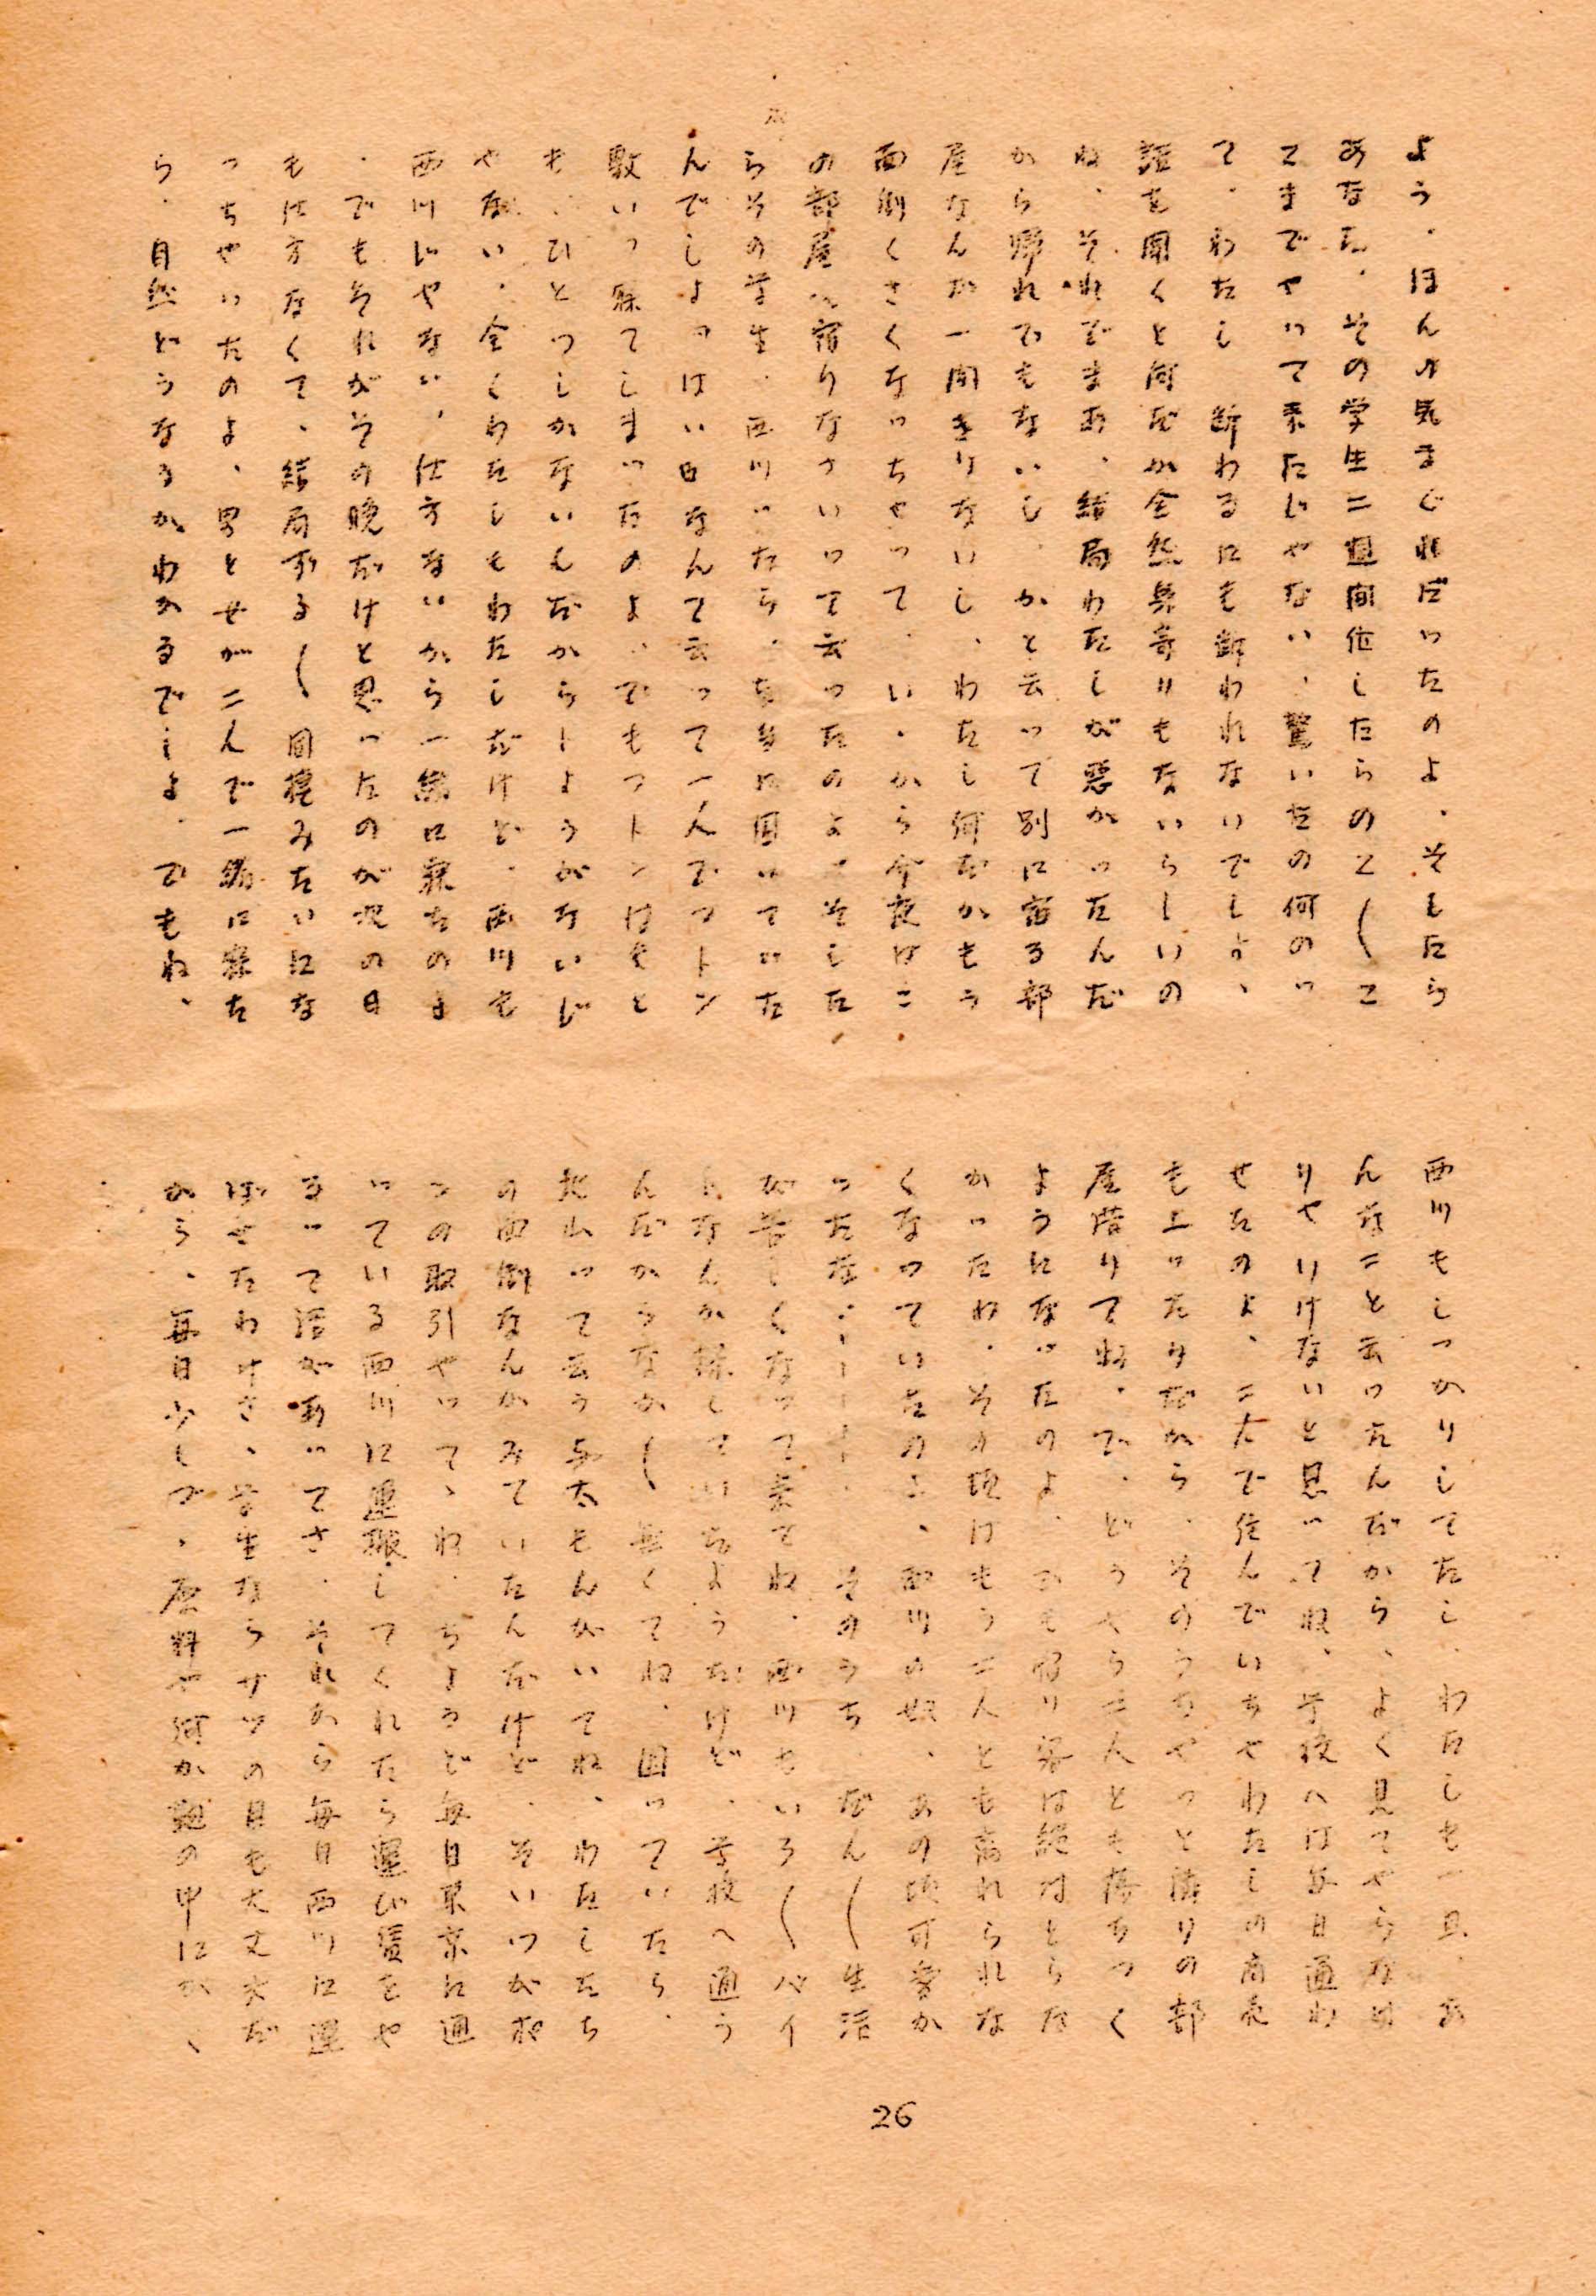 よう。ほんの気まぐれだったのよ、そしたら
あなた、その学生二週間位したらのこ〱こ
こまでやって来たじゃない、驚いたの何のっ
て、わたし断わるにも断われないでしょう、
話を聞くと何だか全然身寄りもないらしいの
ね、それでまあ、結局わたしが悪かったんだ
から帰れでもないし、かと云って別に宿る部
屋なんか一間きりないし、わたし何だかもう
面倒くさくなっちゃって、いゝから今夜はこ
の部屋へ宿りなさいって云ったのよ。そした
らその学生、西川ったら、
んでしょ。はい白なんて云って一人でフトン
敷いて寝てしまったのよ、でもフトンはもと
もゝひとつしかないんだからしようがないじ
やない、全くわたしもわたしだけど、西川も
西川じゃない、仕方ないから一緒に寝たのよ
。でもそれがその晩だけと思ったのが次の日
も仕方なくて、結局ずる〱同棲みたいにな
っちゃいたのよ、男とせが二人で一緒に寝た
ら、自然どうなるかわかるでしょ。でもね、
西川もしっかりしてたし、わたしも一旦、あ
んなこと云ったんだから、よく見てやらなけ
りゃいけないと思ってね、学校へは毎日通わ
せたのよ、二人で住んでいちゃわたしの商売
も上ったりだから、そのうちやっと隣りの部
屋借りてね、で、どうやら二人とも落ちつく
ようになったのよ、わたし客は絶対とらな
かったね、その頃はもう二人とも离れられな
くなっていたのよ、西川の奴、あの頃可愛か
ったな……。そのうち、だん〱生活
が苦しくなって来てね、西川もいろ〱バイ
トなんか探していたようだけど、学校へ通う
んだからなか〱無くてね、困っていたら、
北山って云う与太もんがいてね、わたしたち
の面倒なんかみていたんだけど、そいつが物
の取引やって、ね、ちょうど毎日東京に通
っている西川に運搬してくれたら運び賃をや
るって話があってさ、それから毎日西川に運
ばせたわけさ、学生ならサツの目も大丈夫だ
から、毎日少しづゝ原料や何か鞄の中にかく
26